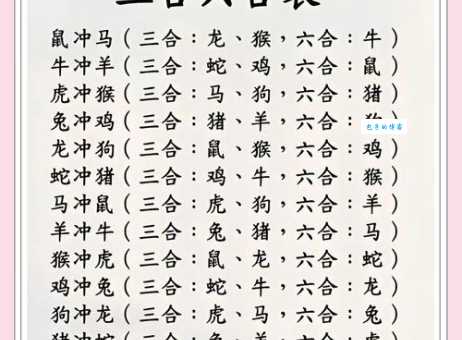 三合六合表
鼠冲马（三合：龙、猴，六合：牛）
牛冲羊（三合：蛇、鸡，六合：鼠）
虎冲猴（三合：马、狗，六合：猪）
兔冲鸡（三合：猪、羊，六合：狗）
龙冲狗（三合：鼠、猴，六合：鸡）
蛇冲猪（三合：鸡、牛，六合：猴）
马冲鼠（三合：虎、狗，六合：羊）
羊冲牛（三合：兔、猪，六合：马）
猴冲虎（三合：鼠、龙，六合：蛇）
鸡冲兔（三合：蛇、牛，六合：龙）
狗冲龙（三合：虎、马，六合：兔）
猪冲蛇（三合：兔、羊，六合：虎）